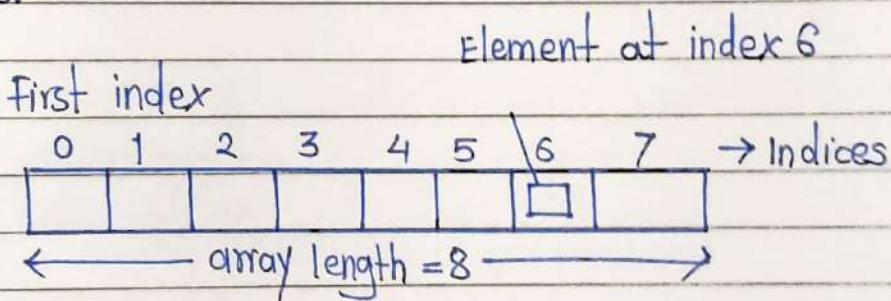 Element at index 6
First index
0 1 2 3 4 5 6 7 → Indices
array length = 8